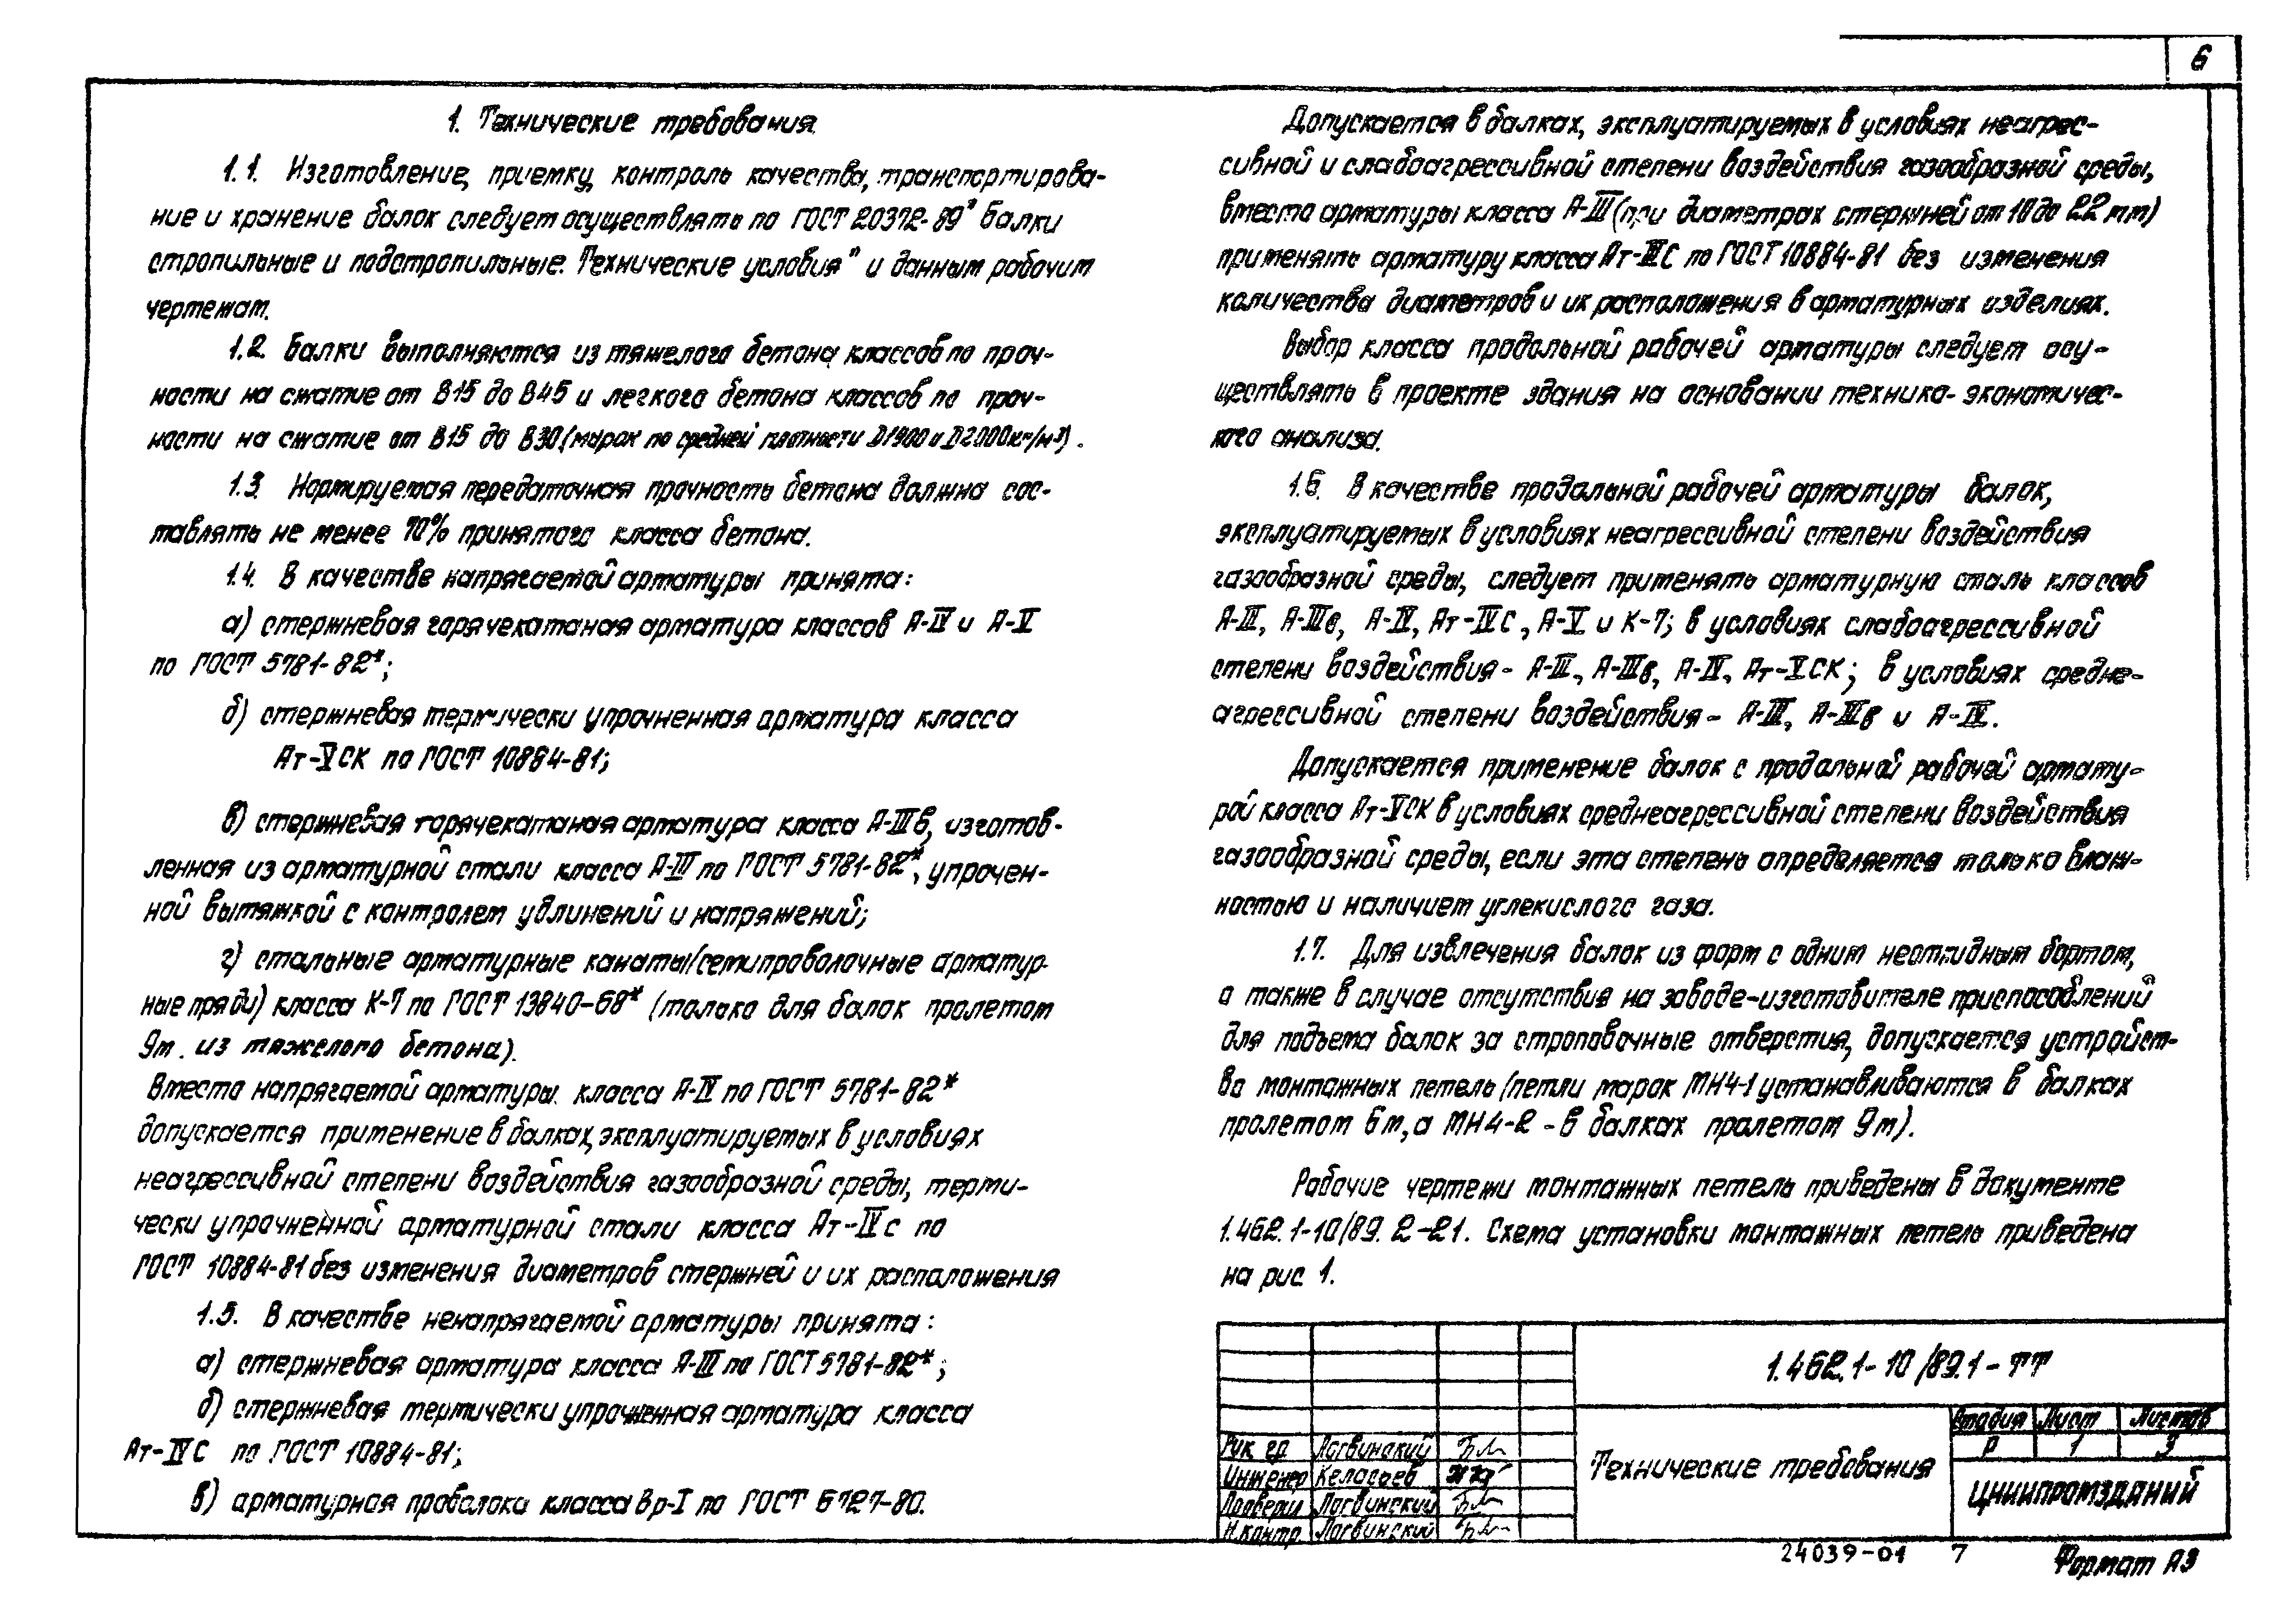 6
1. Технические требования
1.1. Изготовление, приемку, контроль качества, транспортирова-
ние и хранение балок следует осуществлять по ГОСТ 20372-89" Балки
стропильные и подстропильные. Технические условия" и данным рабочим
чертежам.
1.2. Балки выполняются из тяжелого бетона классов по проч-
ности на сжатие от В15 до В45 и легкого бетона классов по проч-
ности на сжатие от В15 до В30 (марок по средней плотности D1900 и D2000кг/м³).
1.3. Нормируемая передаточная прочность бетона должна сос-
тавлять не менее 70% принятого класса бетона.
1.4. В качестве напрягаемой арматуры принята:
а) стержневая горячекатаная арматура классов А-IV и А-V
по ГОСТ 5781-82*;
б) стержневая термически упрочненная арматура класса
Ат-VСК по ГОСТ 10884-81;
в) стержневая горячекатаная арматура класса А-IIIв, изготов-
ленная из арматурной стали класса А-III по ГОСТ 5781-82*, упрочен-
ной вытяжкой с контролем удлинений и напряжений;
г) стальные арматурные канаты (семипроволочные арматур-
ные пряди) класса К-7 по ГОСТ 13840-68* (только для балок пролетом
9м. из тяжелого бетона).
Вместо напрягаемой арматуры класса А-IV по ГОСТ 5781-82*
допускается применение в балках, эксплуатируемых в условиях
неагрессивной степени воздействия газообразной среды, терми-
чески упрочненной арматурной стали класса Ат-IVс по
ГОСТ 10884-81 без изменения диаметров стержней и их расположения
1.5. В качестве ненапрягаемой арматуры принята:
а) стержневая арматура класса А-III по ГОСТ 5781-82*;
б) стержневая термически упрочненная арматура класса
Ат-IVС по ГОСТ 10884-81;
в) арматурная проволока класса Вр-I по ГОСТ 6727-80.
Допускается в балках, эксплуатируемых в условиях неагрес-
сивной и слабоагрессивной степени воздействия газообразной среды,
вместо арматуры класса А-III (при диаметрах стержней от 10 до 22 мм)
применять арматуру класса Ат-IIIС по ГОСТ 10884-81 без изменения
количества диаметров и их расположения в арматурных изделиях.
Выбор класса продольной рабочей арматуры следует осу-
ществлять в проекте здания на основании технико-экономичес-
кого анализа.
1.6. В качестве продольной рабочей арматуры балок,
эксплуатируемых в условиях неагрессивной степени воздействия
газообразной среды, следует применять арматурную сталь классов
А-III, А-IIIв, А-IV, Ат-IVС, А-V и К-7; в условиях слабоагрессивной
степени воздействия - А-III, А-IIIв, А-IV, Ат-VСК; в условиях средне-
агрессивной степени воздействия - А-III, А-IIIв и А-IV.
Допускается применение балок с продольной рабочей армату-
рой класса Ат-VСК в условиях среднеагрессивной степени воздействия
газообразной среды, если эта степень определяется только влаж-
ностью и наличием углекислого газа.
1.7. Для извлечения балок из форм с одним неоткидным бортом,
а также в случае отсутствия на заводе-изготовителе приспособлений
для подъема балок за строповочные отверстия, допускается устройст-
во монтажных петель (петли марок МН4-1 устанавливаются в балках
пролетом 6м, а МН4-2 - в балках пролетом 9м).
Рабочие чертежи монтажных петель приведены в документе
1.462.1-10/89.2-21. Схема установки монтажных петель приведена
на рис 1.
1.462.1-10/89.1-ТТ
Рук. гр. Логвинский
Инженер
Проверил Логвинский
Н.контр. Логвинский
Технические требования
Стадия Лист Листов
Р 1 3
ЦНИИПРОМЗДАНИЙ
24039-01 7
Формат А3